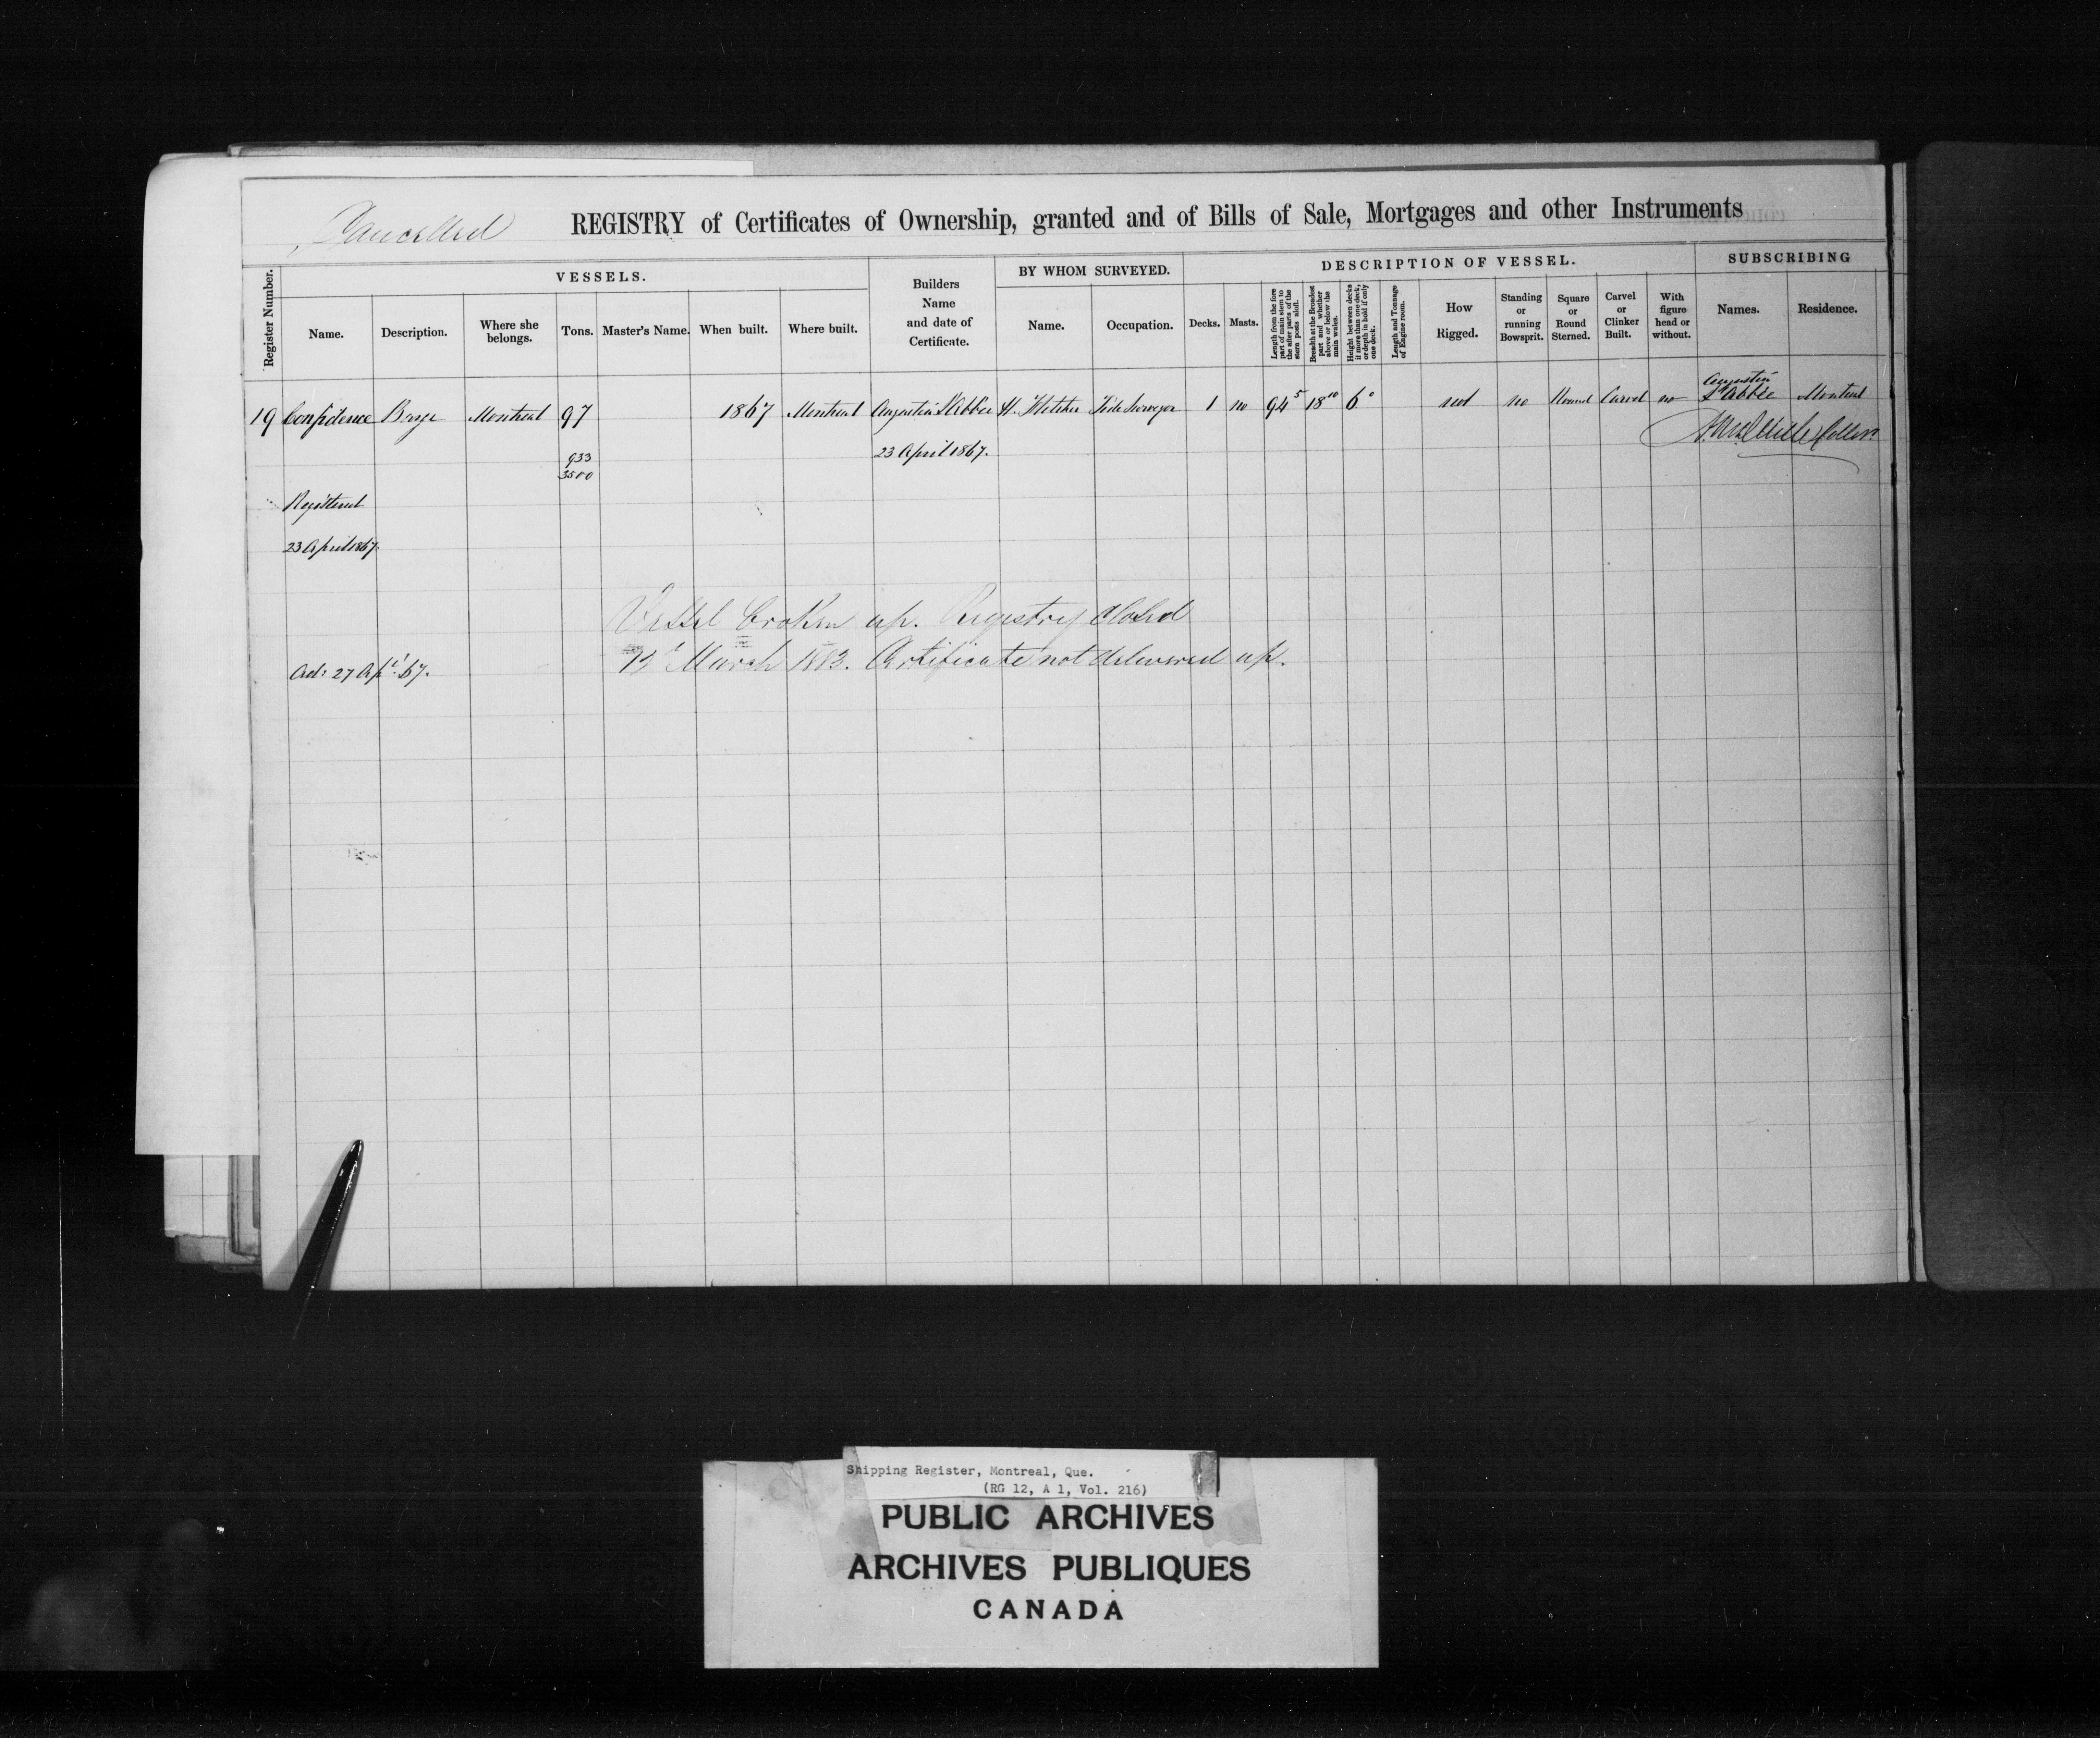 Cancelled
REGISTRY of Certificates of Ownership, granted and of Bills of Sale, Mortgages and other Instruments
Register Number.
VESSELS.
Name.
Description.
Where she belongs.
Tons.
Master's Name.
When built.
Where built.
Builders Name and date of Certificate.
BY WHOM SURVEYED.
Name.
Occupation.
DESCRIPTION OF VESSEL.
Decks.
Masts.
Length from the fore part of main stem to the after parts of the stern posts aloft.
Breadth at the Broadest part and whether above or below the main wales.
Height between decks if more than one deck, or depth in hold if only one deck.
Length and Tonnage of Engine room.
How Rigged.
Standing or running Bowsprit.
Square or Round Sterned.
Carvel or Clinker Built.
With figure head or without.
SUBSCRIBING
Names.
Residence.
19 Confidence Barge Montreal 97 1867 Montreal Augustin L'Abbée H. Fletcher Tide Surveyor 1 no 94 5 18 10 6 0 not no Round Carvel no Augustin L'Abbée Montreal
933
3500
23 April 1867.
Registered
23 April 1867.
Vessel broken up. Registry closed
13 March 1883. Certificate not delivered up.
Ad: 27 Apl. 67.
Shipping Register, Montreal, Que.
(RG 12, A 1, Vol. 216)
PUBLIC ARCHIVES
ARCHIVES PUBLIQUES
CANADA